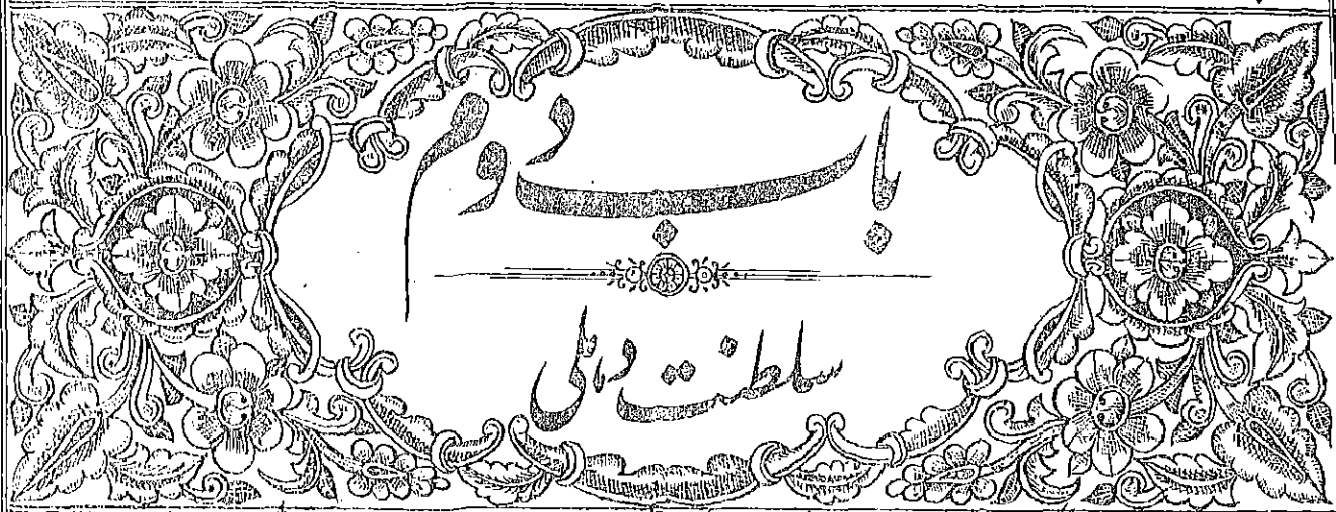 باب دوم
سلطنت دہلی